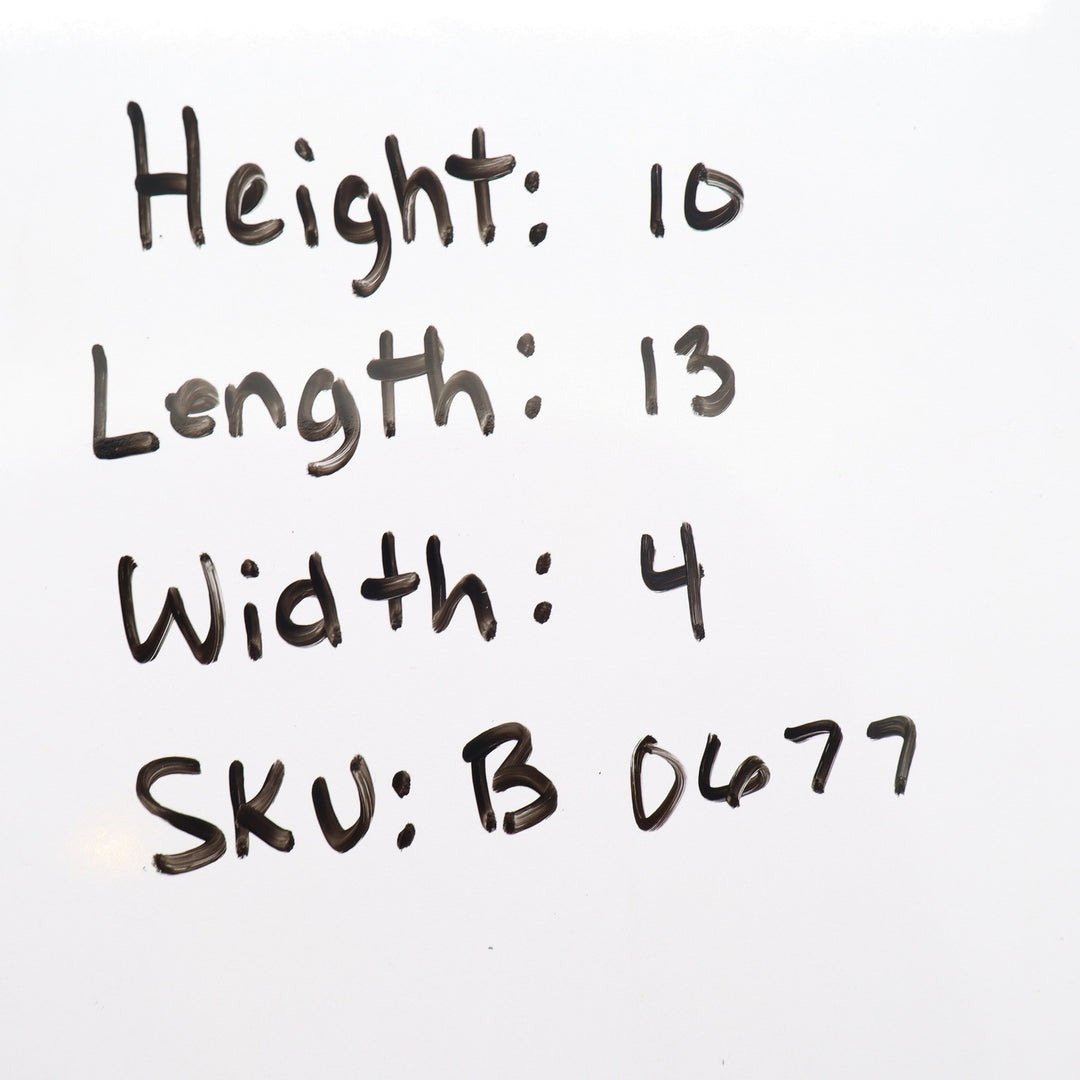 Height: 10
Length: 13
Width: 4
SKU: B 0677